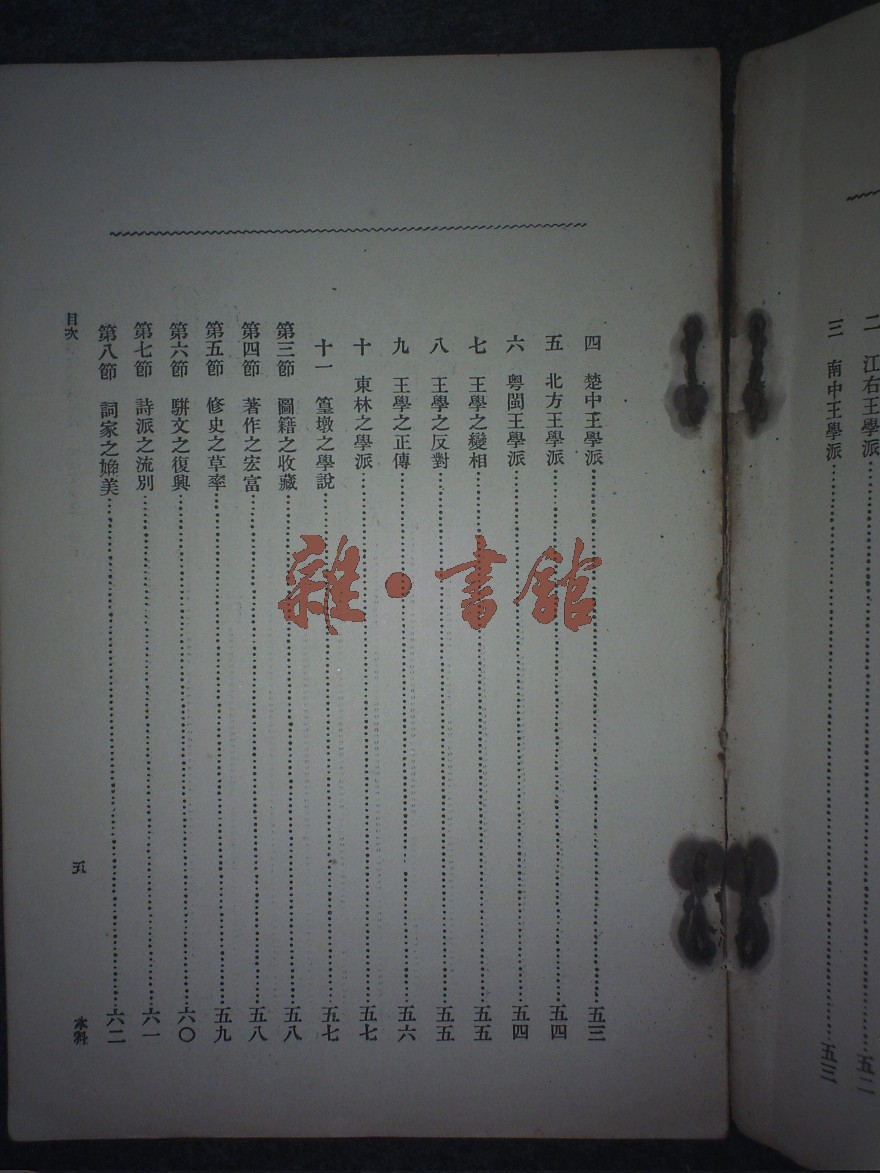 二　江右王學派……五二
三　南中王學派……五三
四　楚中王學派……五三
五　北方王學派……五四
六　粤閩王學派……五四
七　王學之變相……五五
八　王學之反對……五五
九　王學之正傳……五六
十　東林之學派……五七
十一　篁墩之學說……五七
第三節　圖籍之收藏……五八
第四節　著作之宏富……五八
第五節　修史之草率……五九
第六節　駢文之復興……六〇
第七節　詩派之流別……六一
第八節　詞家之媲美……六二
目次
五
本科
雜·書館